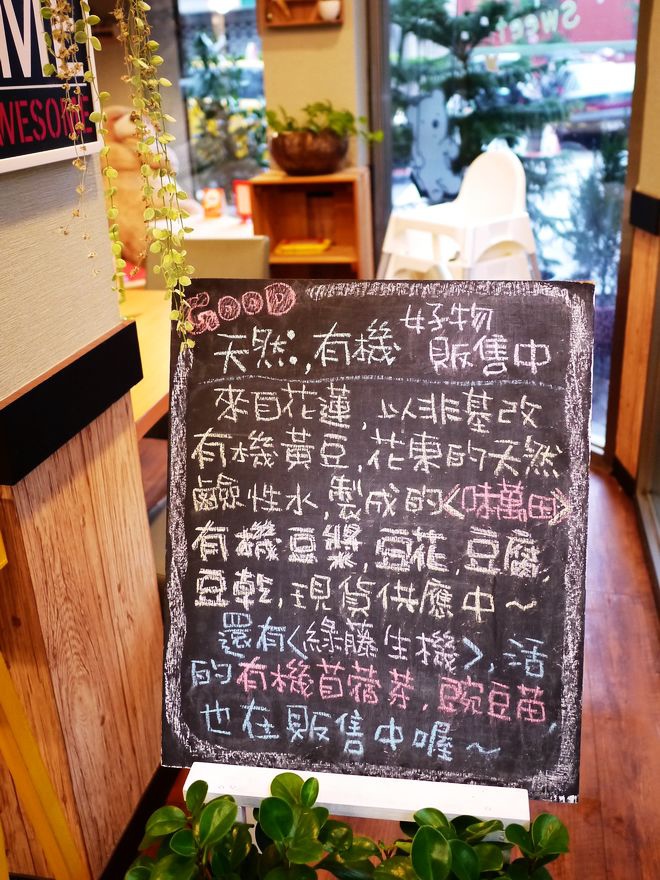 WESOME
GOOD
好物
天然,有機 販售中
來自花蓮,以非基改
有機黃豆,花東的天然
鹼性水,製成的<味萬田>
有機豆漿,豆花,豆腐,
豆乾,現貨供應中~
還有<綠藤生機>,活
的有機苜蓿芽,豌豆苗,
也在販售中喔~